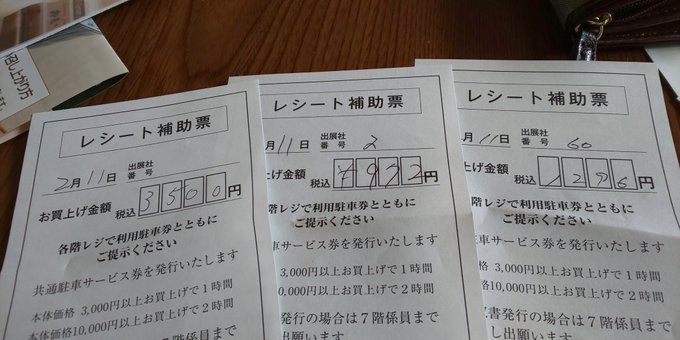 召し上がり方
レシート補助票
2月11日 出展社番号
お買上げ金額 税込 3500円
各階レジで利用駐車券とともに
ご提示ください
共通駐車サービス券を発行いたします
本体価格 3,000円以上お買上げで1時間
本体価格10,000円以上お買上げで2時間
レシート補助票
月11日 出展社番号 2
上げ金額 税込 円
階レジで利用駐車券とともに
ご提示ください
車サービス券を発行いたします
3,000円以上お買上げで1時間
0,000円以上お買上げで2時間
発行の場合は7階係員まで
し出願います
レシート補助票
月11日 出展社番号 60
上げ金額 税込 1296円
階レジで利用駐車券とともに
ご提示ください
車サービス券を発行いたします
格 3,000円以上お買上げで1時間
格10,000円以上お買上げで2時間
書発行の場合は7階係員まで
し出願います